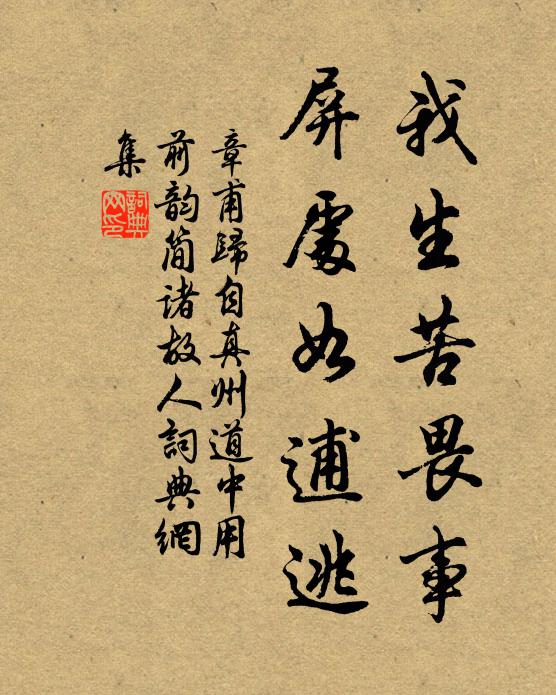 我生苦畏事
屏處如逋逃
章甫歸自真州道中用
前韵簡诸故人詞典網
集
詞典
网印